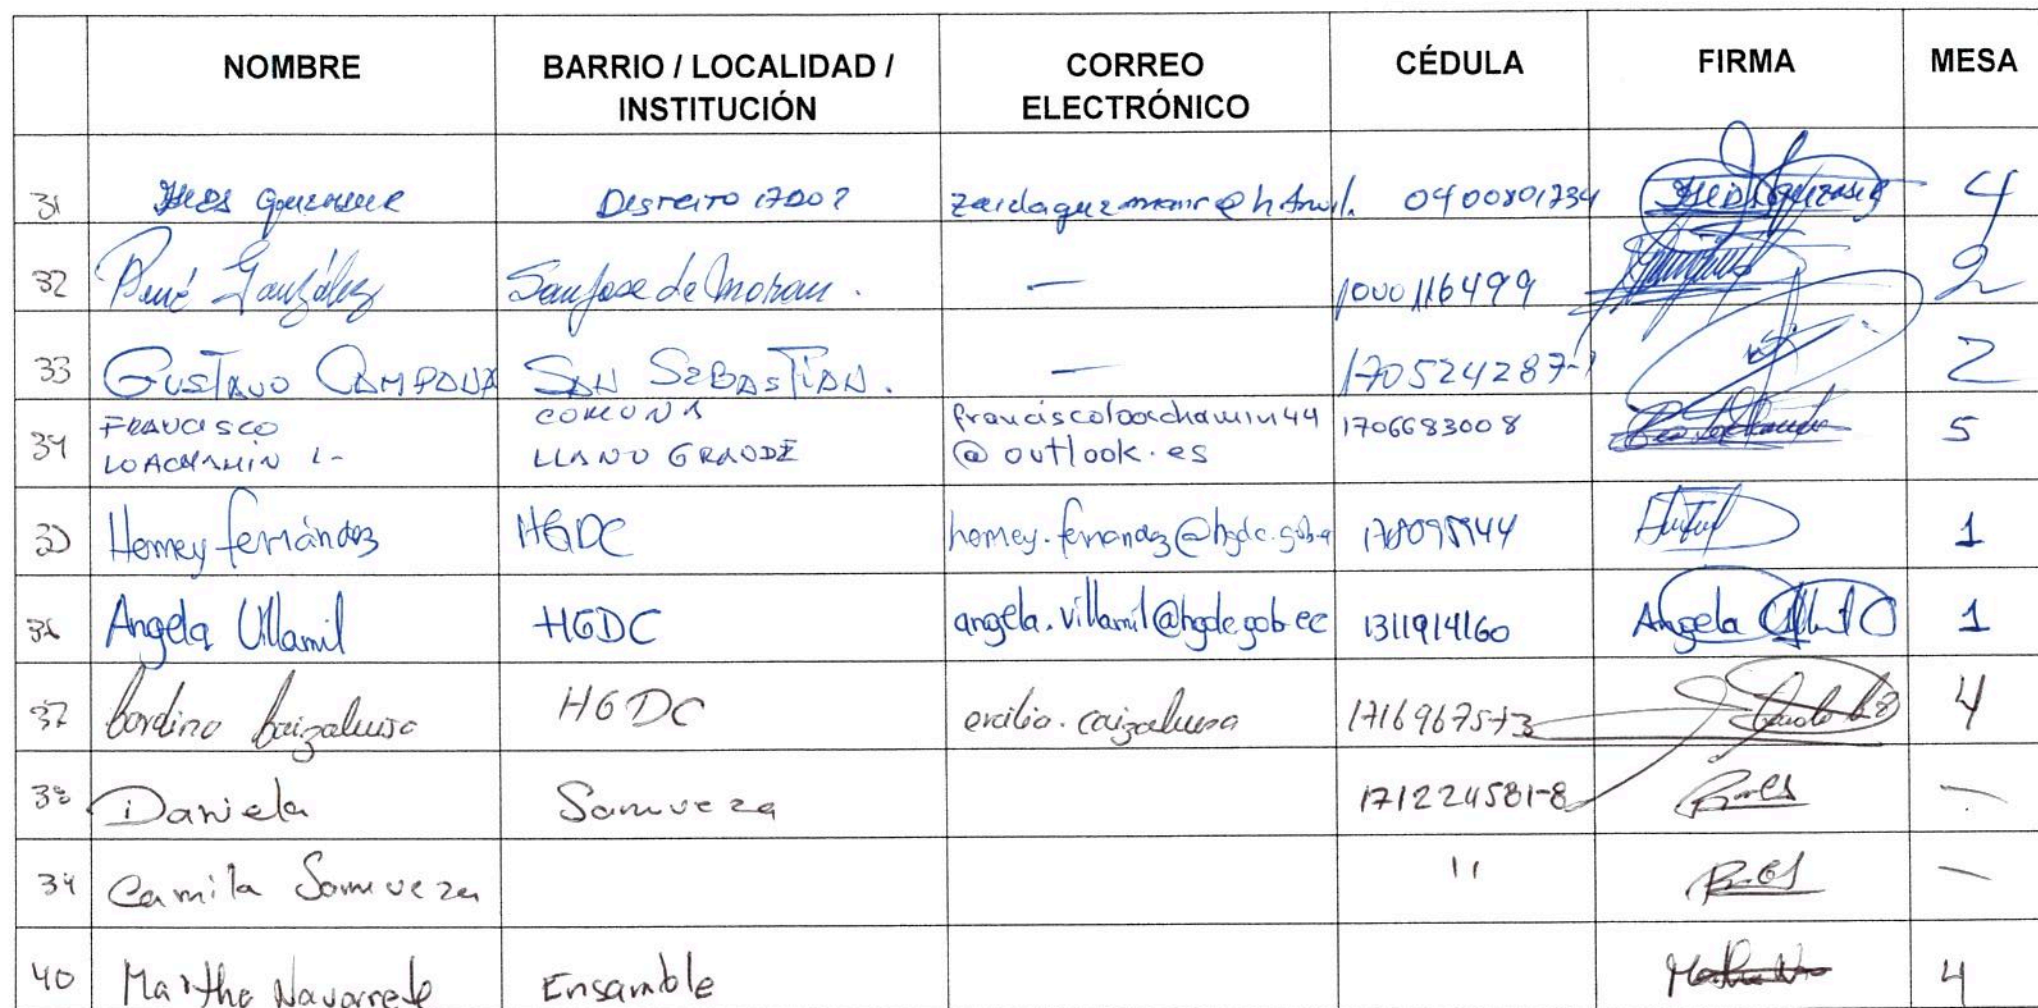 NOMBRE BARRIO / LOCALIDAD / INSTITUCIÓN CORREO ELECTRÓNICO CÉDULA FIRMA MESA
31 Distrito 17D02 0400801734 4
32 René González San jose de moran. — 1000116499 2
33 GUSTAVO CAMPANA SAN SEBASTIAN. — 170524287-1 2
34 FRANCISCO LOACHAMIN L- COMUNA LLANO GRANDE franciscoloachamin44@outlook.es 1706683008 5
Homey fernández HGDC 1
36 Angela Villamil HGDC angela.villamil@hgdc.gob.ec 1311914160 Angela 1
37 caizaluisa HGDC caizaluisa 4
38 Daniela Samueza 171224581-8 —
39 Camila Samueza 11 —
40 Martha Navarrete Ensamble 4